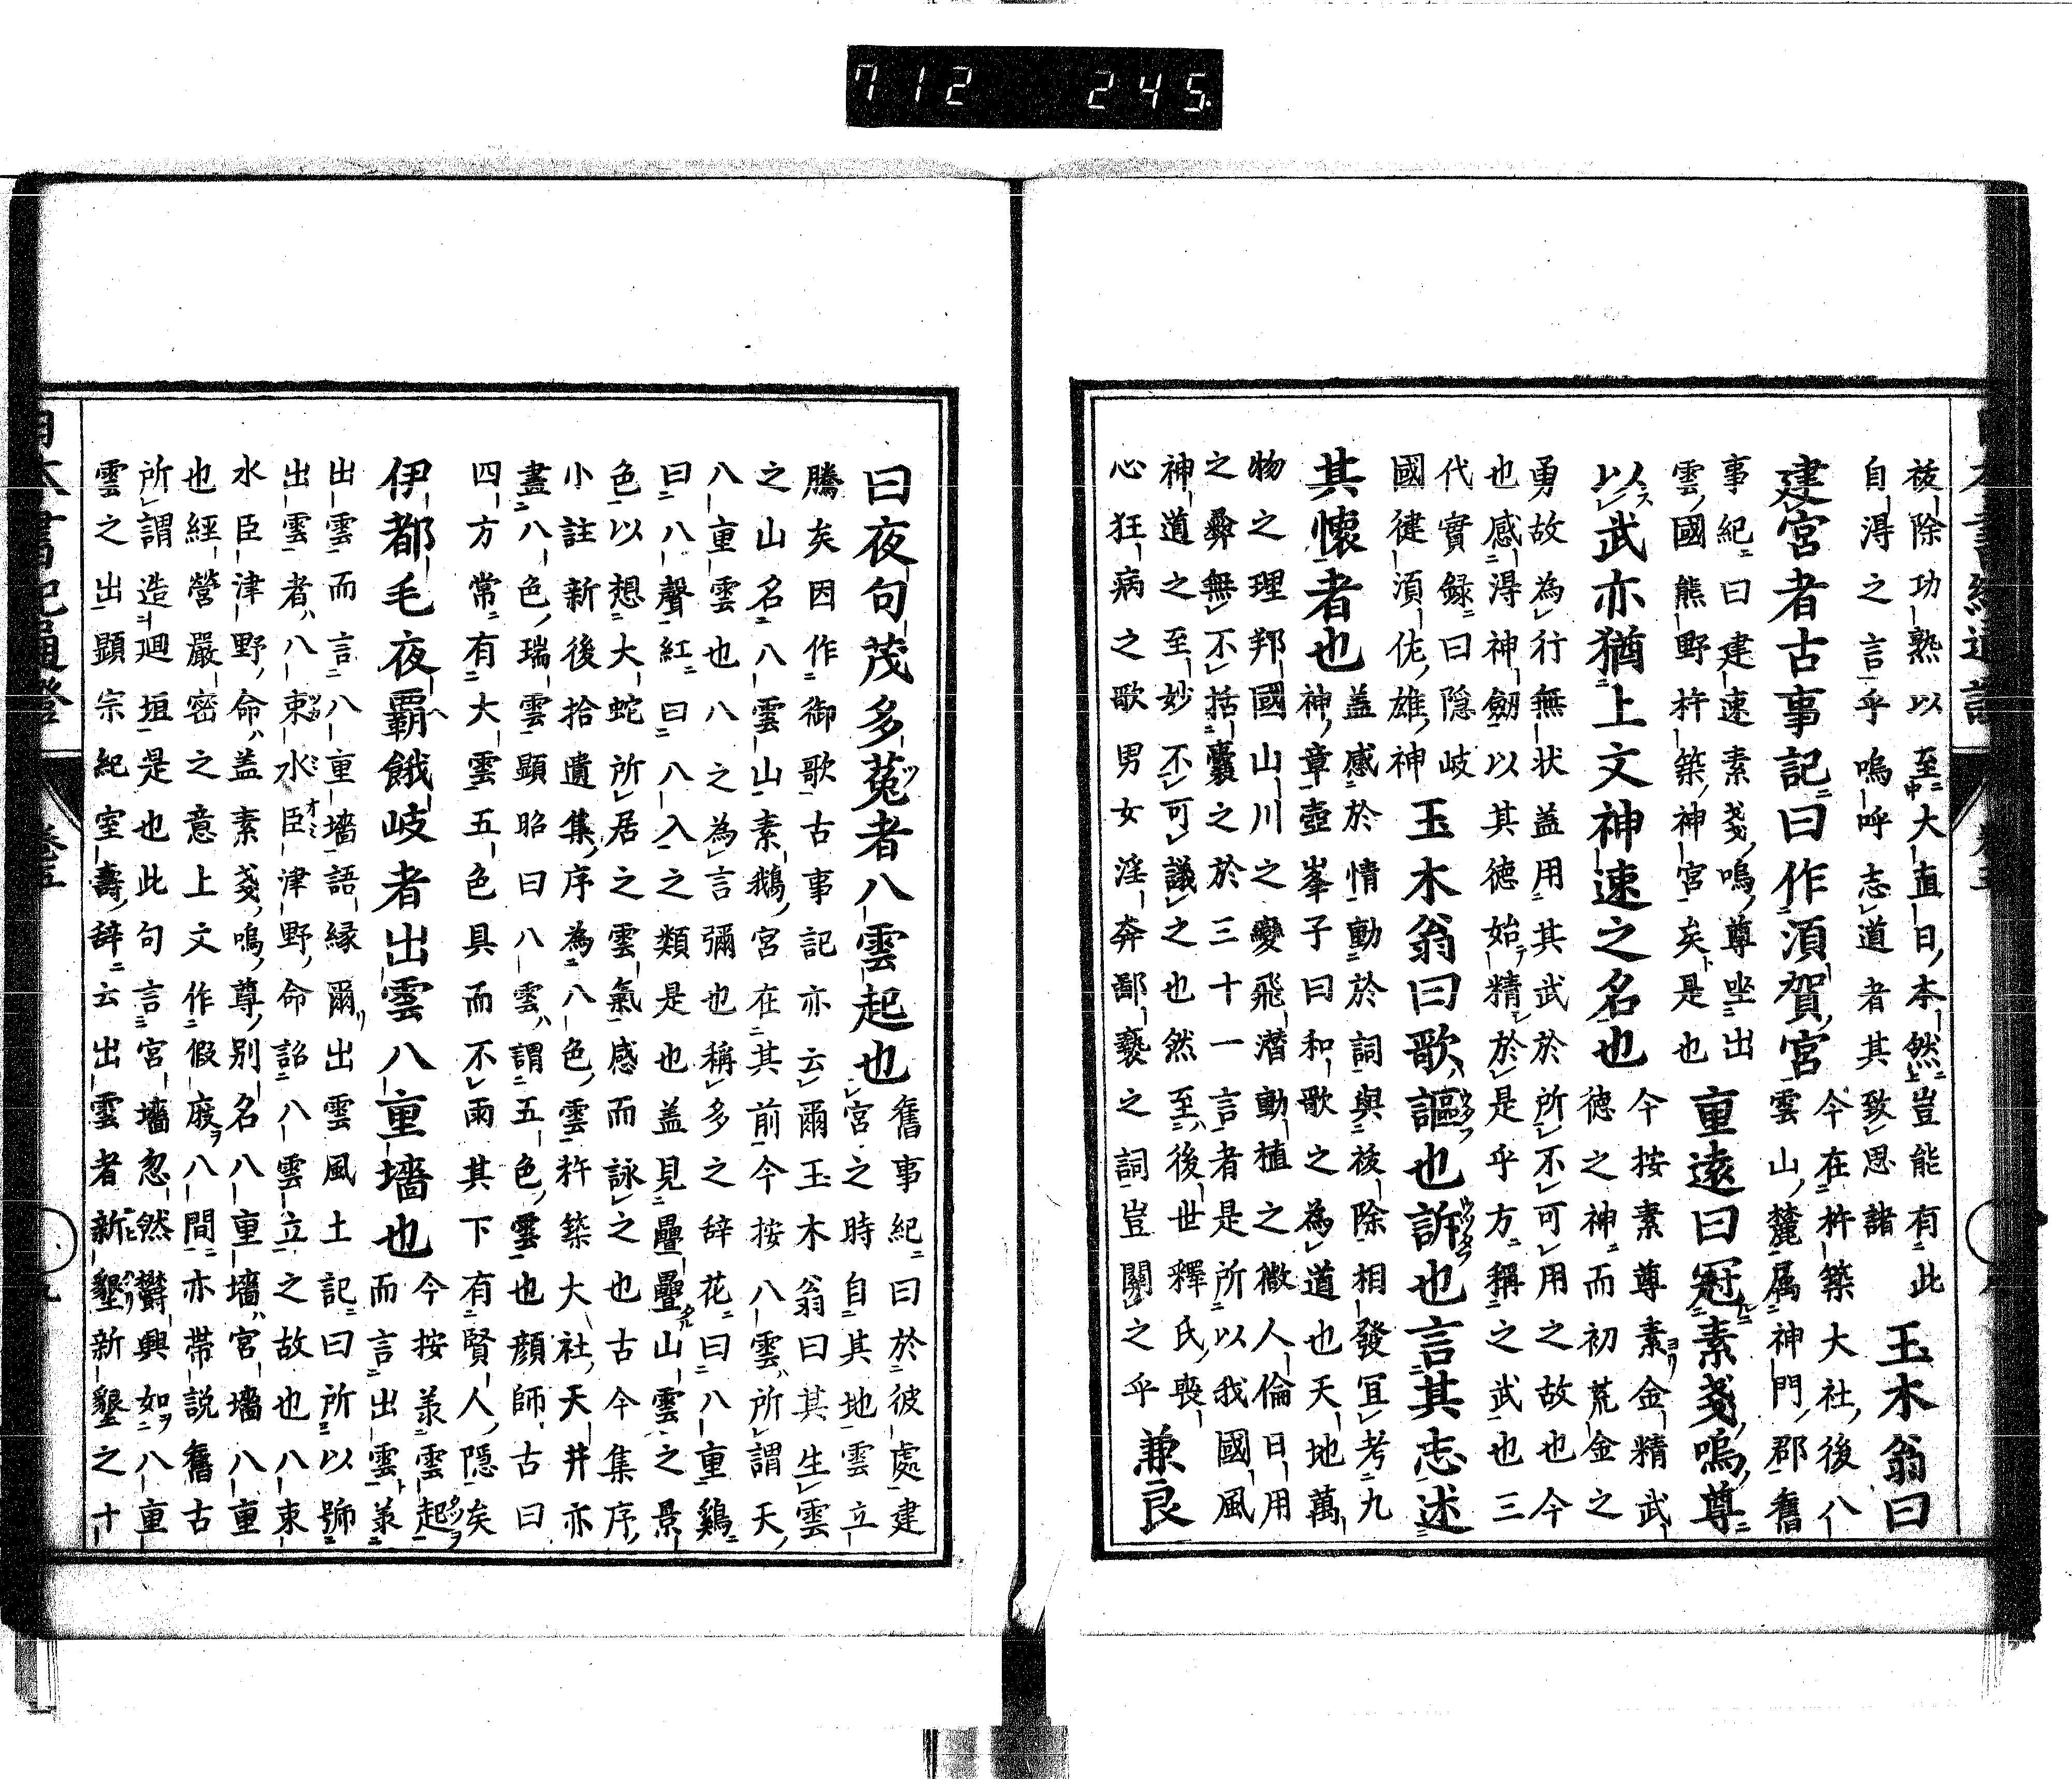 712 245.
祓除功熟以至大直日本然豈能有此
自淂之言乎嗚呼志道者其致思諸
玉木翁曰
建宮者古事記曰作湏賀宮
今在杵築大社後八
雲山麓属神門郡舊
事紀曰建速素戔嗚尊坐出
雲國熊野杵築神宮矣是也
重遠曰冠素戔嗚尊
以武亦猶上文神速之名也
今按素尊素金精武
徳之神而初荒金之
勇故為行無状盖用其武於所不可用之故也今
也感淂神劔以其徳始精於是乎方稱之武也三
代實録曰隠岐
國健湏佐雄神
玉木翁曰歌謳也訴也言其志述
其懷者也
盖感於情動於詞與祓除相發冝考九
神章壺峯子曰和歌之為道也天地萬
物之理邦國山川之變飛潛動植之微人倫日用
之彝無不括囊之於三十一言者是所以我國風
神道之至妙不可議之也然至後世釋氏喪
心狂病之歌男女淫奔鄙褻之詞豈關之乎
兼良
曰夜句茂多菟者八雲起也
舊事紀曰於彼處建
宮之時自其地雲立
騰矣因作御歌古事記亦云爾玉木翁曰其生雲
之山名八雲山素鵝宮在其前今按八雲所謂天
八重雲也八之為言彌也稱多之辞花曰八重鷄
曰八聲紅曰八入之類是也盖見疊疊山雲之景
色以想大蛇所居之雲氣感而詠之也古今集序
小註新後拾遺集序為八色雲杵築大社天井亦
畫八色瑞雲顕昭曰八雲謂五色雲也顔師古曰
四方常有大雲五色具而不雨其下有賢人隠矣
伊都毛夜覇餓岐者出雲八重墻也
今按羕雲起
而言出雲羕
出雲而言八重墻語縁爾出雲風土記曰所以號
出雲者八束水臣津野命詔八雲立之故也八束
水臣津野命盖素戔嗚尊别名八重墻宮墻八重
也經營嚴密之意上文作假庪八間亦帯説舊古
所謂造廻垣是也此句言宮墻忽然欝興如八重
雲之出顕宗紀室壽辞云出雲者新墾新墾之十